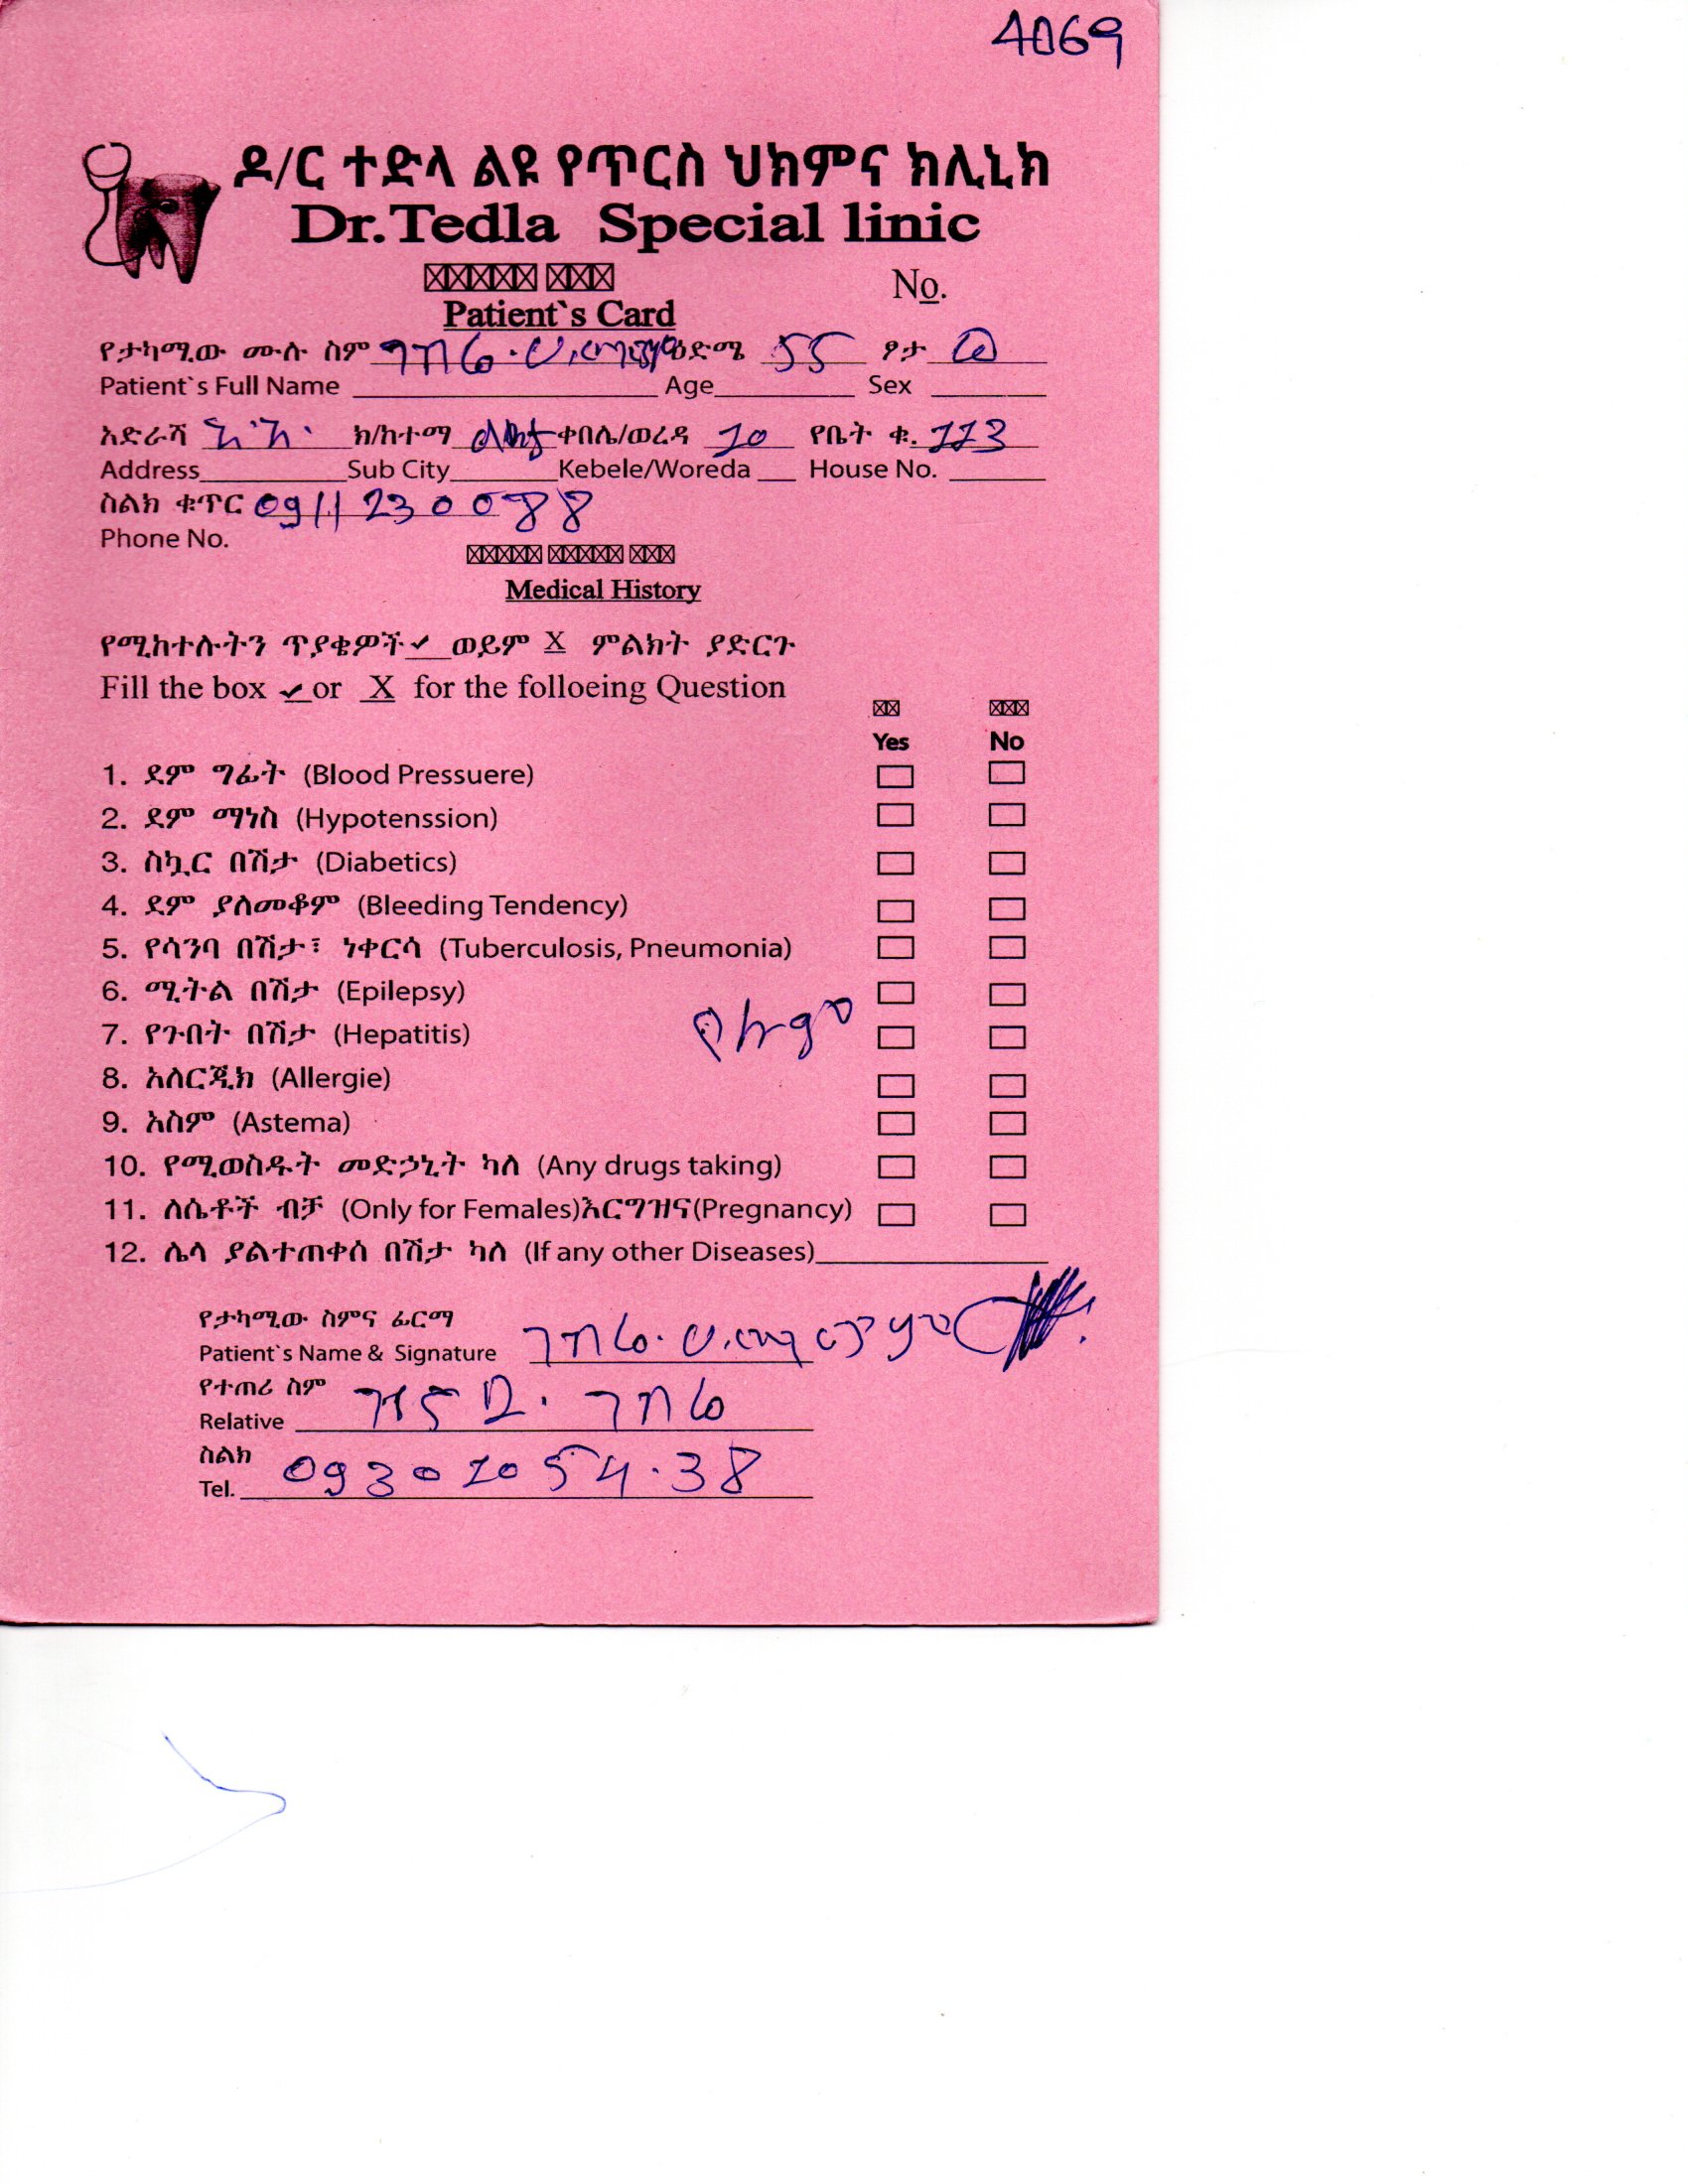 4069
ዶ/ር ተድላ ልዩ የጥርስ ህክምና ክሊኒክ
Dr.Tedla Special linic
No.
Patient`s Card
የታካሚው ሙሉ ስም ገብሬ ዕድሜ 55 ፆታ ወ
Patient`s Full Name Age Sex
አድራሻ አ.አ. ክ/ከተማ ልደታ ቀበሌ/ወረዳ 10 የቤት ቁ. 113
Address Sub City Kebele/Woreda House No.
ስልክ ቁጥር 0911230088
Phone No.
Medical History
የሚከተሉትን ጥያቄዎች ✓ ወይም X ምልክት ያድርጉ
Fill the box ✓ or X for the folloeing Question
Yes No
1. ደም ግፊት (Blood Pressuere)
2. ደም ማነስ (Hypotenssion)
3. ስኳር በሽታ (Diabetics)
4. ደም ያለመቆም (Bleeding Tendency)
5. የሳንባ በሽታ፣ ነቀርሳ (Tuberculosis, Pneumonia)
6. ሚትል በሽታ (Epilepsy)
7. የጉበት በሽታ (Hepatitis)
የለም
8. አለርጂክ (Allergie)
9. አስም (Astema)
10. የሚወስዱት መድኃኒት ካለ (Any drugs taking)
11. ለሴቶች ብቻ (Only for Females)እርግዝና(Pregnancy)
12. ሌላ ያልተጠቀሰ በሽታ ካለ (If any other Diseases)
የታካሚው ስምና ፊርማ ገብሬ
Patient`s Name & Signature
የተጠሪ ስም ገብሬ
Relative
ስልክ 0930105438
Tel.